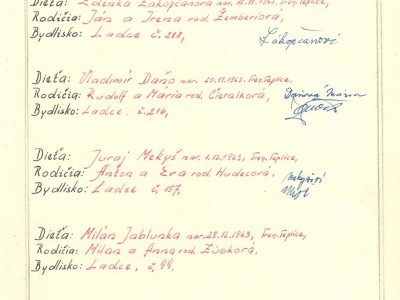 Dieťa: Zdenka Lakopčanová nar. 12.11.1963, Tren. Teplice,
Rodičia: Ján a Irena rod. Žemberiová,
Bydlisko: Ladce č. 288,
Lakopčanoví
Dieťa: Vladimír Daňo nar. 20.11.1963. Tren. Teplice,
Rodičia: Rudolf a Mária rod. 
Bydlisko: Ladce, č.
Daňová Mária
Dieťa: Juraj Mekyš nar. 1.12.1963, Tren. Teplice,
Rodičia: Anton a Eva rod. Hudecová,
Bydlisko: Ladce č. 157,
Dieťa: Milan Jablunka nar. 28.12.1963, Tren. Teplice,
Rodičia: Milan a Anna rod. Zúbková,
Bydlisko: Ladce, č. 99.